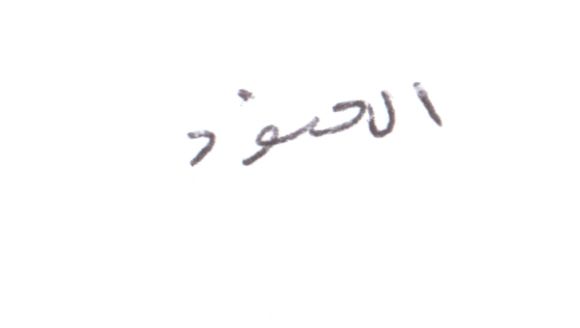 الحمود